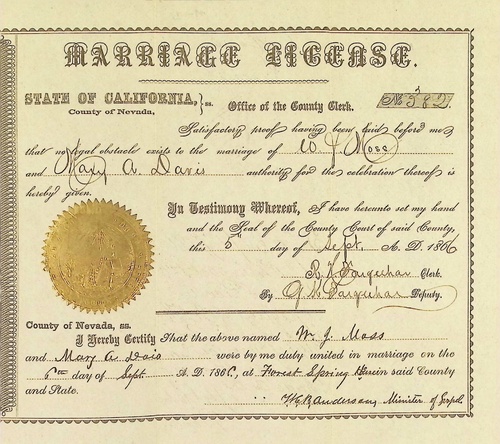 MARRIAGE LICENSE.
STATE OF CALIFORNIA, } ss. Office of the County Clerk. No. 382
County of Nevada,
Satisfactory proof having been laid before me
that no legal obstacle exists to the marriage of W. J. Moss
and Mary A. Davis authority for the celebration thereof is
hereby given.
In Testimony Whereof, I have hereunto set my hand
and the Seal of the County Court of said County,
this 5th day of Sept. A. D. 1866
R. Farquehar Clerk.
By G. K. Farquehar Deputy.
County of Nevada, ss.
I Hereby Certify That the above named W. J. Moss
and Mary A Davis were by me duly united in marriage on the
6th day of Sept. A. D. 1866, at Forest Spring Herein said County
and State.
Anderson, Minister of Gospel